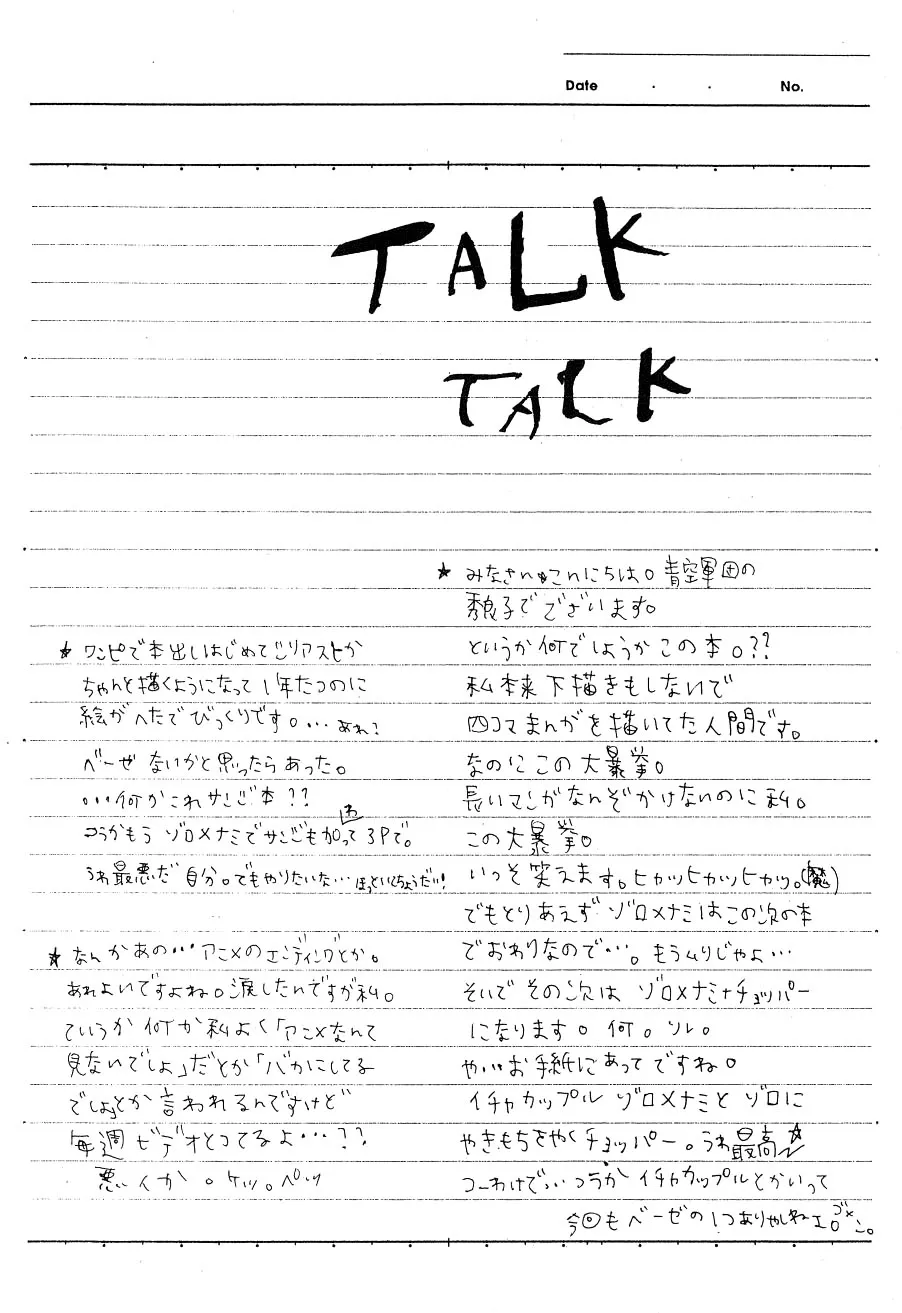 Date . . No.
TALK
TALK
★ みなさんこんにちは。青空軍団の
秀良子でございます。
というか何でしょうかこの本。??
私本来下描きもしないで
四コマまんがを描いてた人間です。
なのにこの大暴挙。
長いマンガなんぞかけないのに私。
この大暴挙。
いっそ笑えます。ヒカッヒカッヒカッ。(魔)
でもとりあえずゾロメナミはこの次の本
でおわりなので…。もうムリじゃよ…
そいでその次は ゾロメナミ+チョッパー
になります。何。ソレ。
や…お手紙にあってですね。
イチャカップル ゾロメナミとゾロに
やきもちをやくチョッパー。うわ最高
つーわけで… つうか イチャカップルとかいって
今回もベーゼの1つありやしねェ。ゴメン。
★ ワンピで本出しはじめて
ちゃんと描くようになって1年たつのに
絵がへたでびっくりです。… あれ?
ベーゼないかと思ったらあった。
…何かこれサンジ本??
つうかもう ゾロメナミでサンジも加わって3Pで。
うわ最悪だ 自分。でもやりたいな… ほっといてちょうだい!
★ なんかあの… アニメのエンディングとか。
あれよいですよね。涙したんですが私。
ていうか何か私よく「アニメなんて
見ないでしょ」だとか「バカにしてる
でしょ」とか言われるんですけど
毎週ビデオとってるよ…??
悪いか。ケッ。ペッ